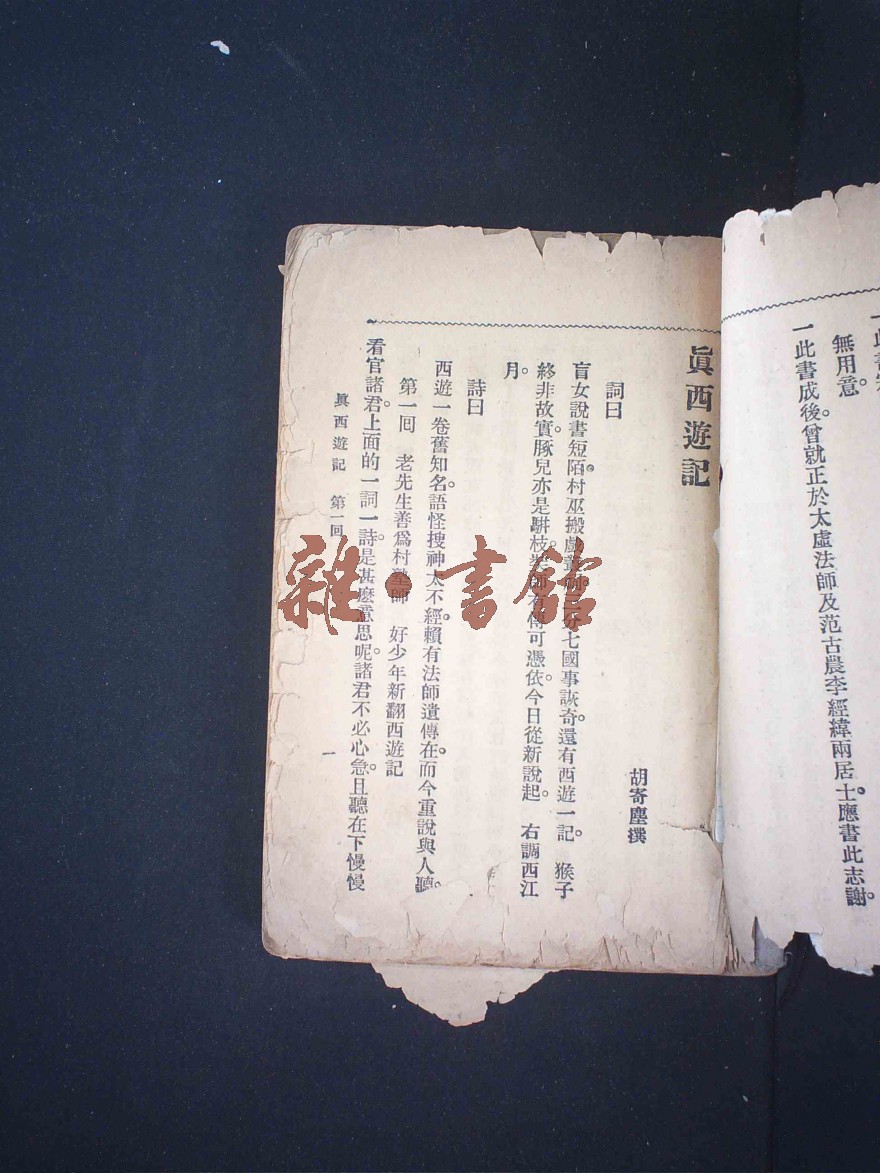 一此書
無用意。
一此書成後。曾就正於太虛法師及范古農李經緯兩居士。應書此志謝。
眞西遊記
胡寄塵撰
詞曰
盲女說書短陌。村巫搬戲 七國事詼奇。還有西遊一記。 猴子
終非故實。豚兒亦是駢枝。 師有傳可憑依。今日從新說起。 右調西江
月。
詩曰
西遊一卷舊知名。語怪搜神太不經。賴有法師遺傳在。而今重說與人聽。
第一回 老先生善爲村塾師 好少年新翻西遊記
看官諸君。上面的一詞一詩。是甚麽意思呢。諸君不必心急。且聽在下慢慢
眞西遊記 第一回
一
雜·書館